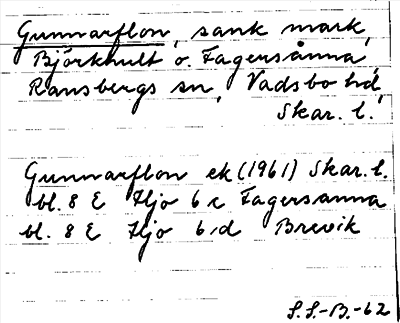 Gunnarflon, sank mark,
Björkhult o. Fagersånna,
Ransbergs sn, Vadsbo hd,
Skar. l.
Gunnarflon ek (1961) Skar. l.
bl. 8 E Hjo 6 c Fagersanna
bl. 8 E Hjo 6 d Brevik
S.S.-B.-62